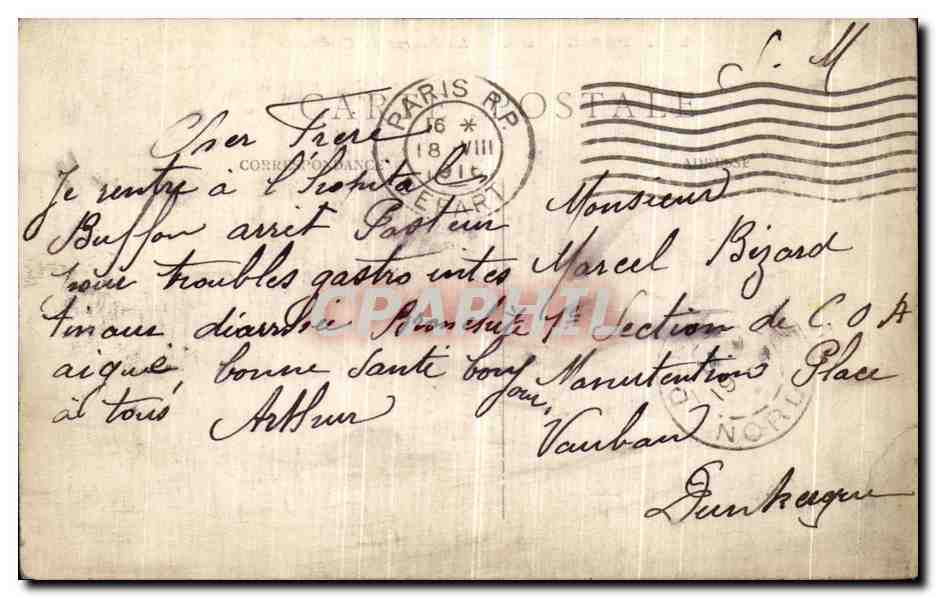 S. M
CARTE POSTALE
PARIS R.P.
16 *
18 VIII
DEPART
CORRESPONDANCE
ADRESSE
Cher Frere
Je rentre à l'hopital
Buffon arret Pasteur
pour troubles gastro intes
tinaux diarrhée Bronchite
aigue, bonne santé bonjour
à tous Arthur
Monsieur
Marcel Bizard
1e Section de C. O A
Manutention Place
Vauban
Dunkerque
19
NORD
CPAPHIL